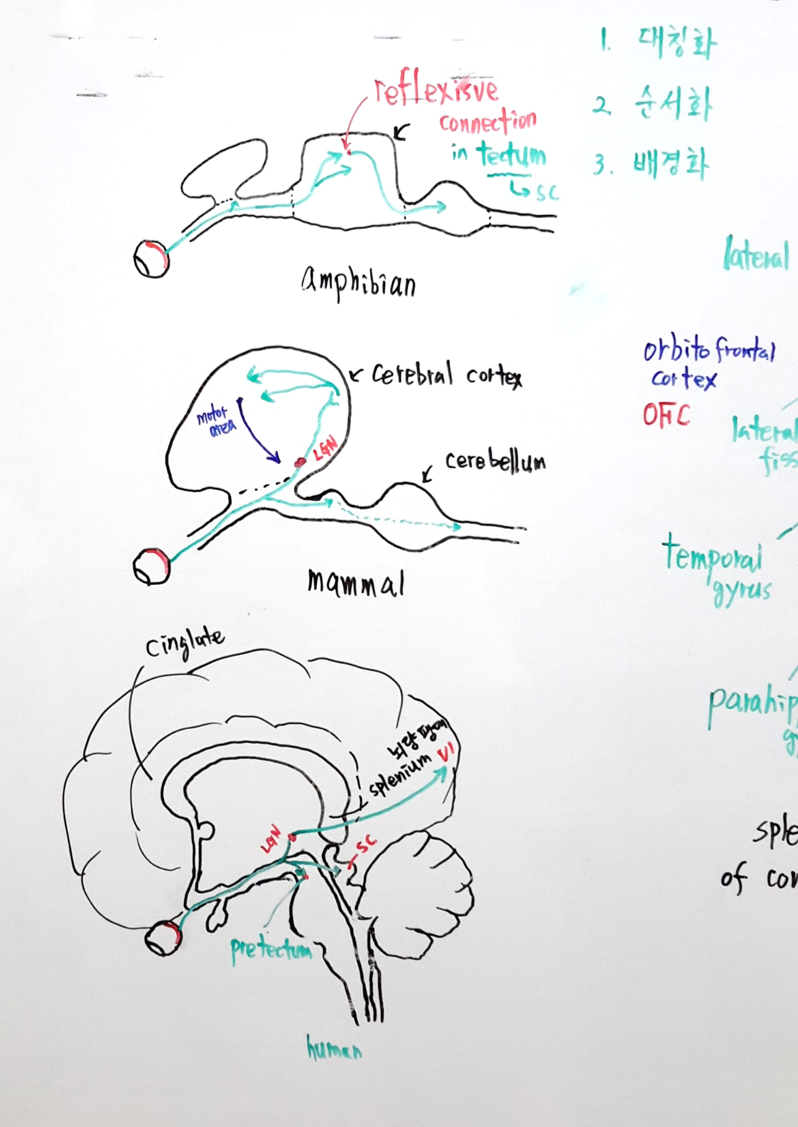 reflexisve
connection
in tectum
↳ SC
amphibian
1. 대칭화
2. 순서화
3. 배경화
lateral
orbitofrontal
cortex
OFC
lateral
fiss
cerebral cortex
motor
area
LGN
cerebellum
mammal
temporal
gyrus
cinglate
뇌량팽대
splenium V1
LGN
SC
pretectum
human
parahip
g
sple
of cor